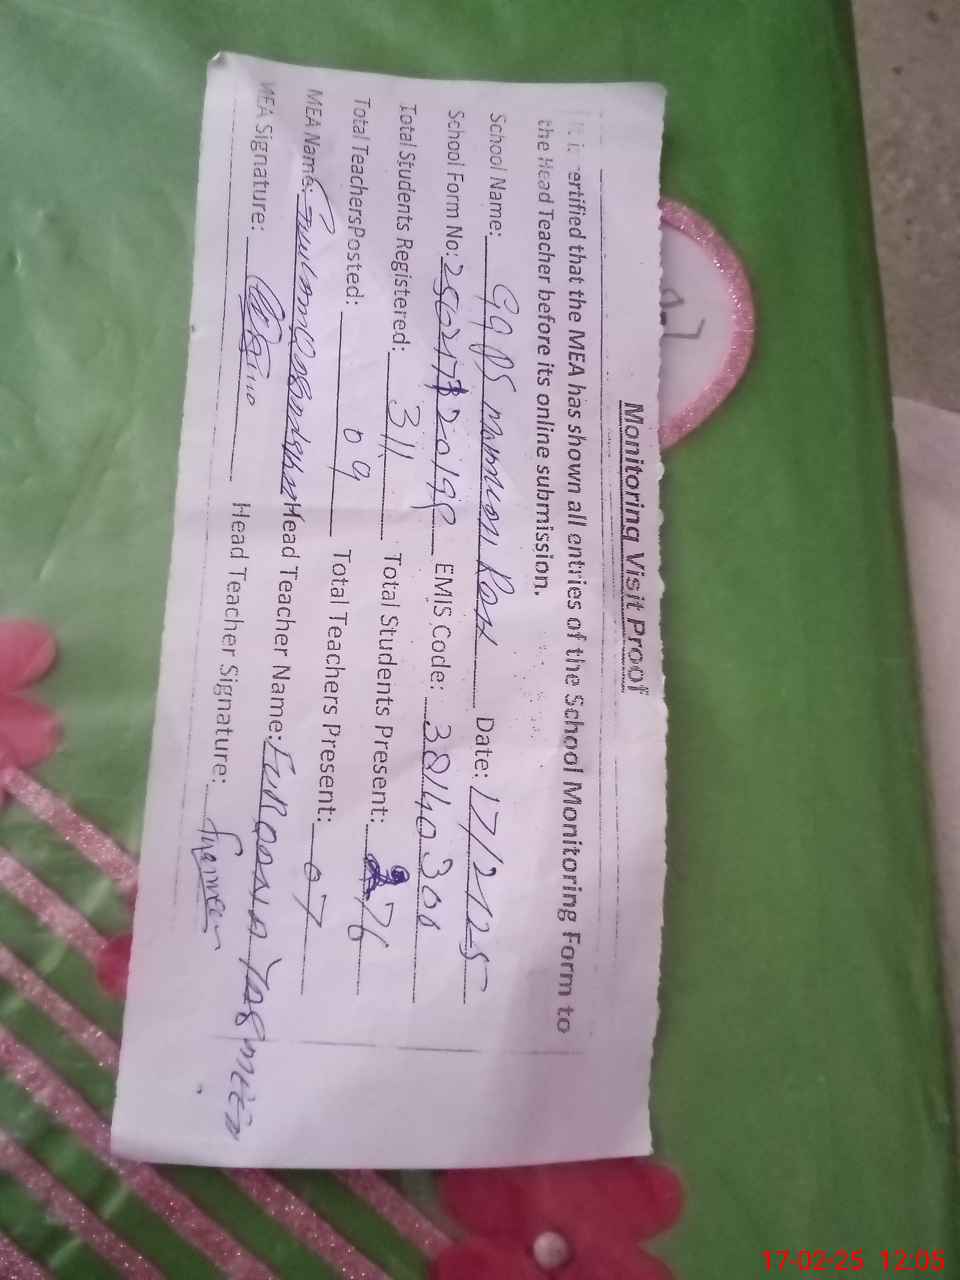 Monitoring Visit Proof
It is certified that the MEA has shown all entries of the School Monitoring Form to
the Head Teacher before its online submission.
School Name: GGPS Date: 17/2/25
School Form No: EMIS Code: 38140300
Total Students Registered: 311 Total Students Present: 276
Total TeachersPosted: 09 Total Teachers Present: 07
MEA Name: Head Teacher Name: Yasmeen
MEA Signature: Head Teacher Signature:
17-02-25 12:05